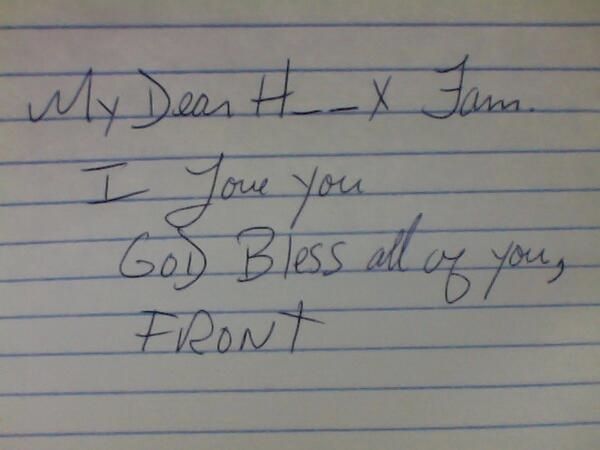 My Dear H__x Fam.
I Love you
GOD Bless all of you,
FRONT